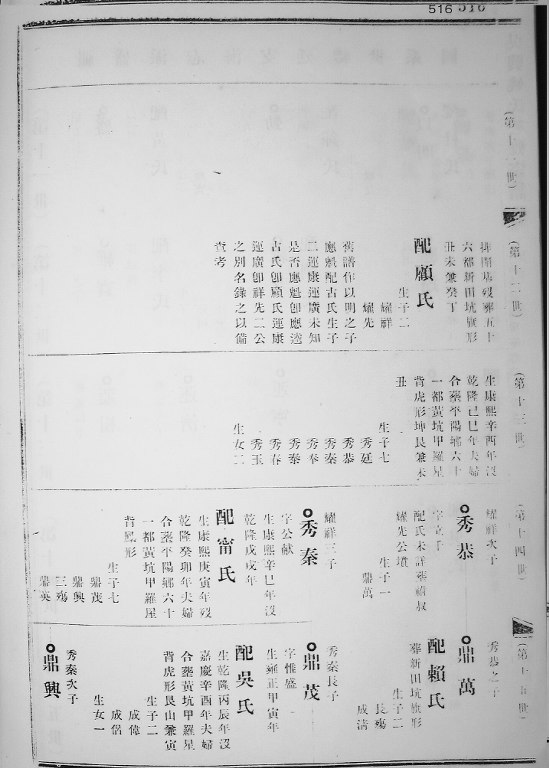 516 516
(第十一世)
(第十二世)
六都新田坑旗形
丑未兼癸丁
配顧氏
生子二
耀祥
耀先
舊譜作以明之子
應魁配古氏生子
二運康運廣未知
是否應魁卽應逵
古氏卽顧氏運康
運廣卽祥先二公
之別名錄之以備
查考
(第十三世)
生康熙辛酉年沒
乾隆己巳年夫婦
合葬平陽鄉六十
一都黃坑甲羅星
背虎形坤艮兼未
丑
生子七
秀廷
秀恭
秀秦
秀奉
秀泰
秀春
秀玉
生女二
(第十四世)
耀祥次子
秀恭
字立千
配氏未詳葬禧叔
耀先公墳
生子一
鼎萬
耀祥三子
秀秦
字公獻
生康熙辛巳年沒
乾隆戊戌年
配甯氏
生康熙庚寅年歿
乾隆癸卯年夫婦
合葬平陽鄉六十
一都黃坑甲羅星
背鳳形
生子七
鼎茂
鼎興
三殤
鼎英
(第十五世)
秀恭之子
鼎萬
配賴氏
葬新田坑旗形
生子二
長殤
成清
秀秦長子
鼎茂
字惟盛
生雍正甲寅年
配吳氏
生乾隆丙辰年沒
嘉慶辛酉年夫婦
合葬黃坑甲羅星
背虎形艮山兼寅
生子二
成偉
成侶
生女一
秀秦次子
鼎興